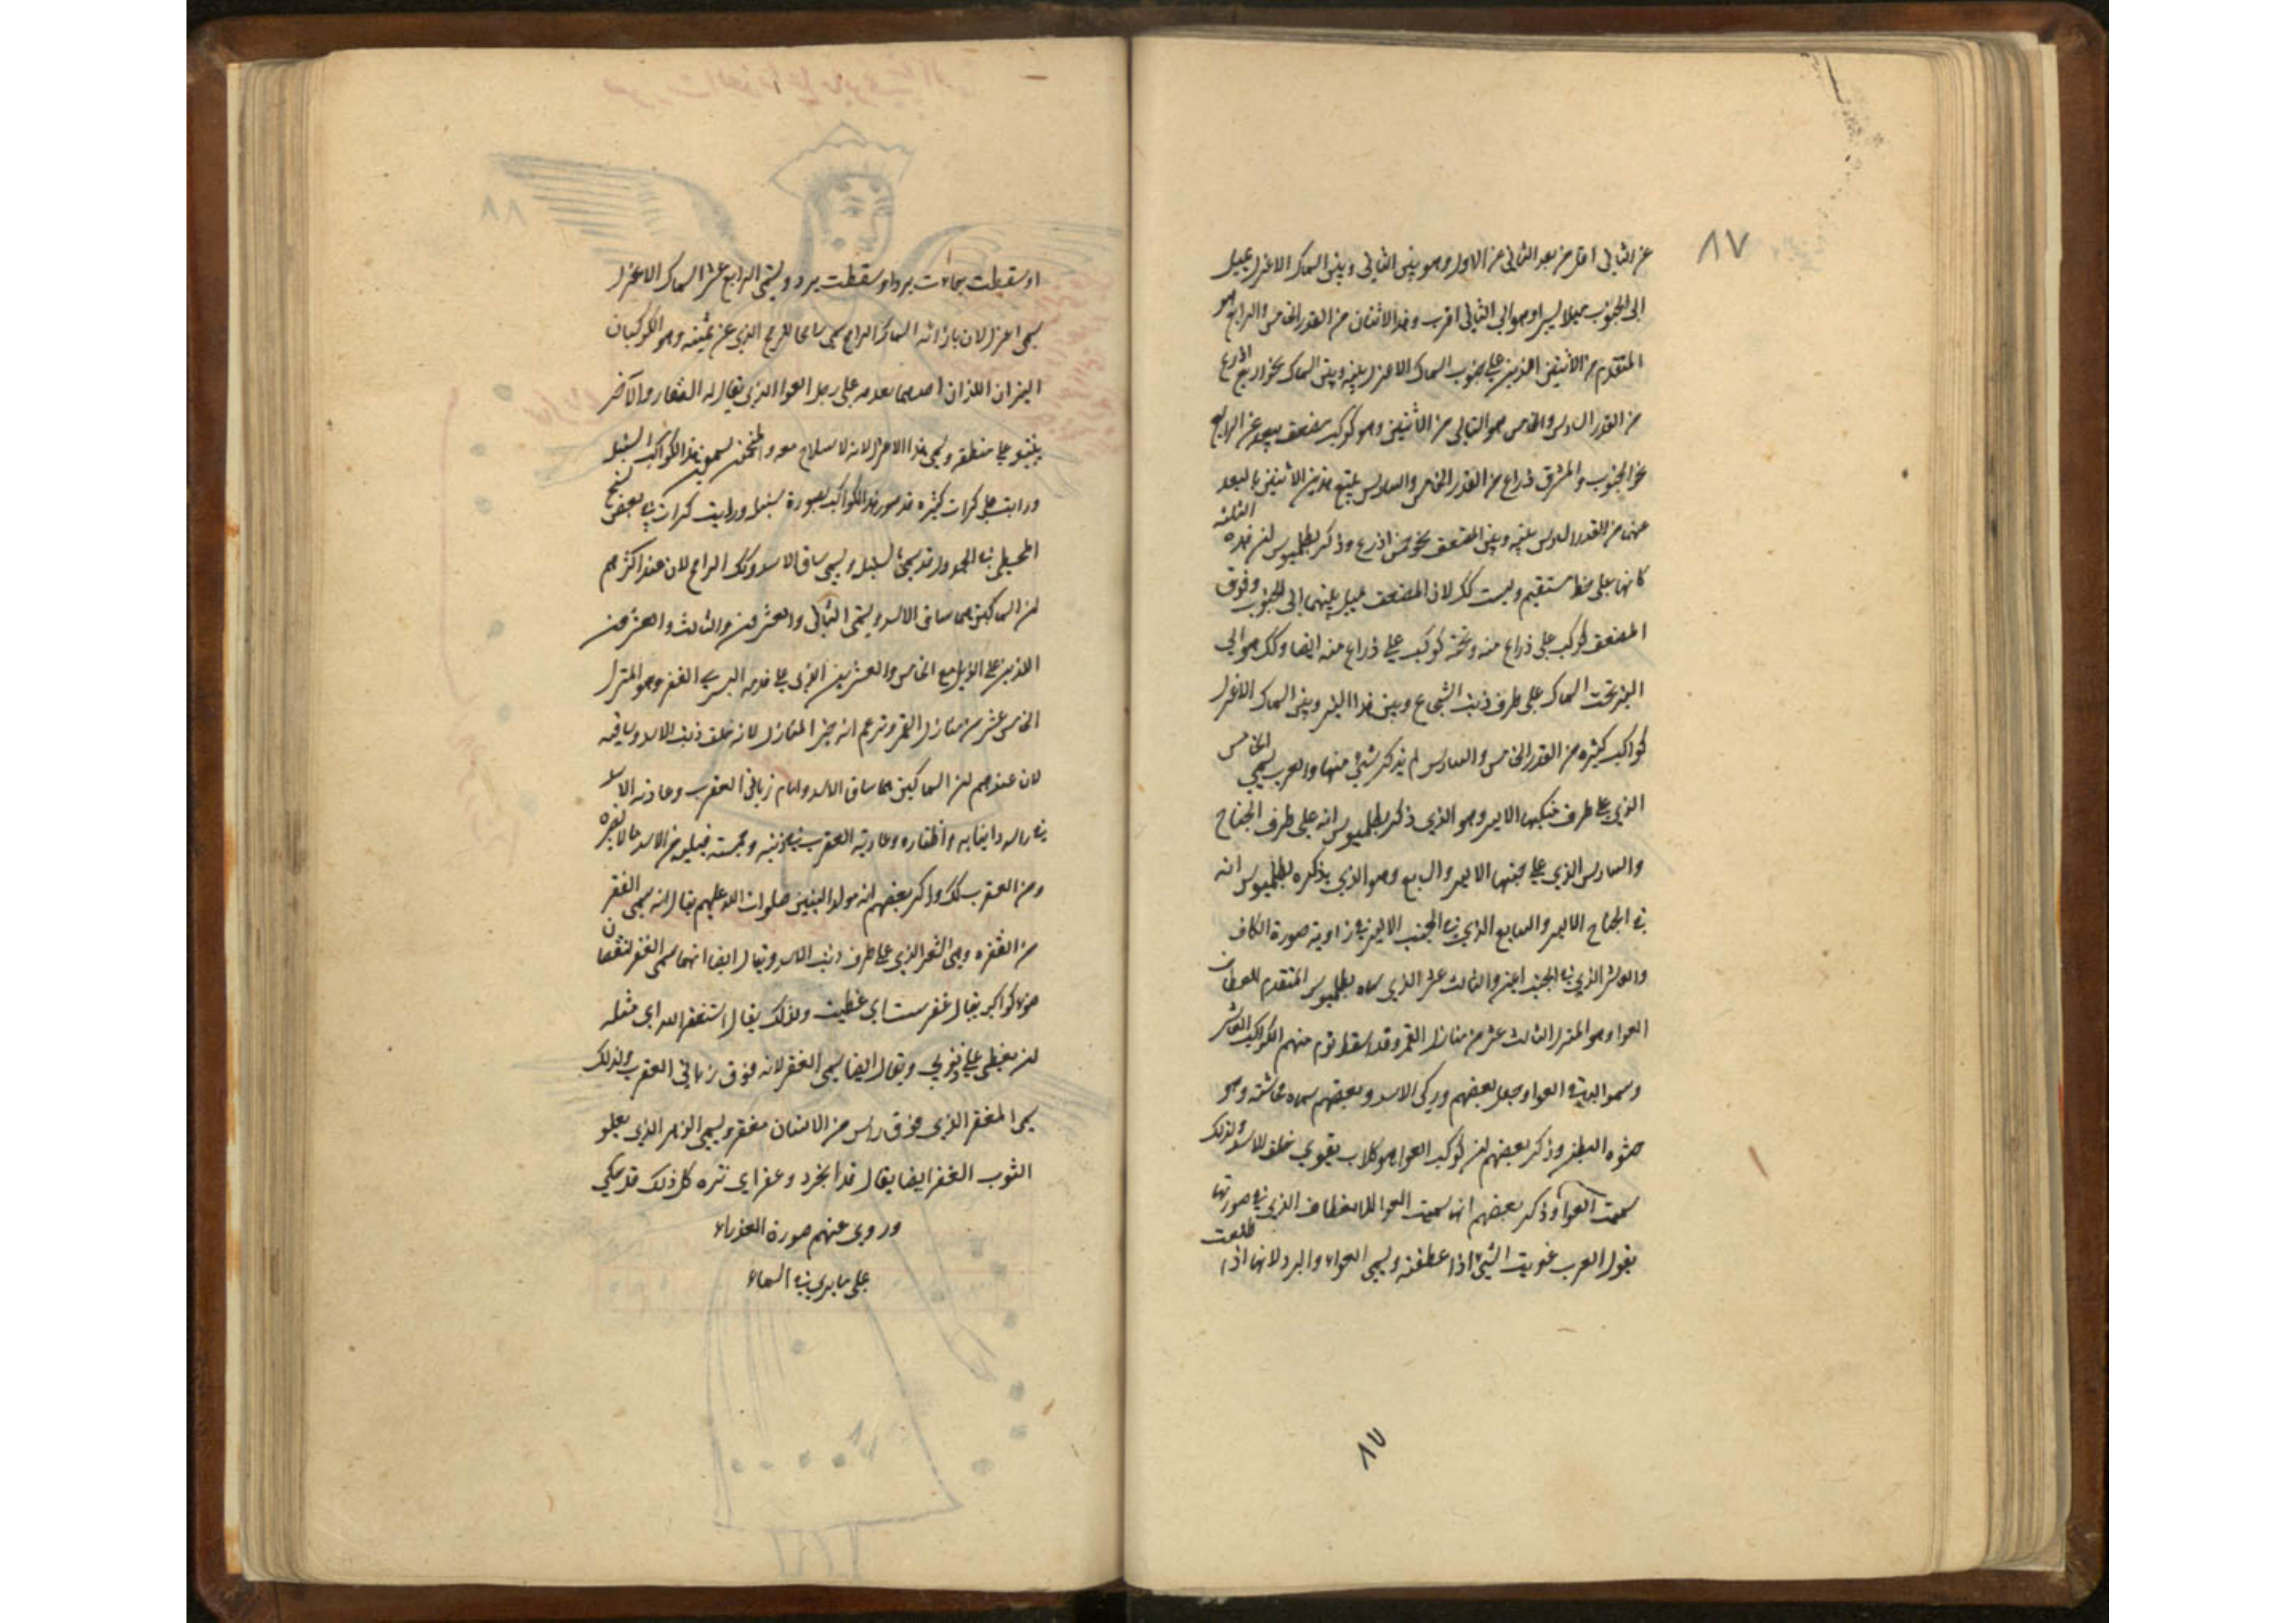 ٨٧
عن الثاني اقل من بعد الثاني عن الاول وهو بين الثاني وبين السماك الاعزل يميل
الى الجنوب ميلا يسيرا وهو الى الثاني اقرب وهذا الاثنان من القدر الخامس والرابع هو
المتقدم من الاثنين الذين على جنوب السماك الاعزل بينه وبين السماك نحو اربع اذرع
من القدر السادس والخامس هو التالي من الاثنين وهو كوكب مضعف يبعد عن الرابع
نحو الجنوب والمشرق ذراع من القدر الخامس والسادس يتبع هذين الاثنين بالبعد
عنهما من القدر السادس بينه وبين المضعف نحو خمس اذرع وذكر بطلميوس ان هذه الثلثة
كانها على خط مستقيم وليست كك لان المضعف يميل بينهما الى الجنوب وفوق
المضعف كوكب على ذراع منه وتحته كوكب على ذراع منه ايضا وكك هو الى
النير تحت السماك على طرف ذنب الشجاع وبين هذا النير وبين السماك الاعزل
كواكب كثيرة من القدر الخامس والسادس لم يذكر شئ منها والعرب يسمي الخامس
الذي على طرف منكبها الايسر وهو الذي ذكر بطلميوس انه على طرف الجناح
والسادس الذي على جنبها الايسر والسابع وهو الذي يذكره بطلميوس انه
في الجناح الايسر والسابع الذي في الجنب الايمن في زاوية صورة الكاف
والعاشر الذي في الجنب ايمن والثالث عشر الذي سماه بطلميوس المتقدم للقطاف
العوا وهو المنزل الثالث عشر من منازل القمر وقد اسقط قوم منهم الكوكب العاشر
وسموا البقية العوا وجعل بعضهم وركي الاسد وبعضهم سماه محاشته وهو
حشوه البطن وذكر بعضهم ان كوكب العوا هو كلاب يعوي خلف الاسد ولذلك
سميت العوا وذكر بعضهم انها سميت العوا للانعطاف الذي في صورتها
يقول العرب عويت الشئ اذا عطفته ويسمي العواء والبرد لانها اذا طلعت
٨٧
٨٨
او سقطت جاءت ببرد او سقطت ببرد ويسمي الرابع عشر السماك الاعزل
سمي اعزل لان بازائه السماك الرامح سمي رامحا للرمح الذي عن يمينه وهو الكوكبان
النيران اللذان احدهما بعدمه على رجل العوا الذي يقال له البقار والاخر
ينبئو على منطقه وسمي هذا الاعزل لانه لا سلاح معه والمنجمون يسمون هذا الكواكب السنبل
ورايت على كرات كثيرة قد صور هذا الكواكب بصورة سنبل ورايت كرات في بعض نسخ
المجسطي في الجدول قد سمي السنبل ويسمي ساق الاسد وكك الرامح لان عند اكثرهم
ان السماكين هما ساقي الاسد ويسمي الثاني والعشرون والثالث والعشرون
اللذين على الذيل مع الخامس والعشرين الذي على قدمه اليسري الغفر وهو المنزل
الخامس عشر من منازل القمر وتزعم انه خير المنازل لانه خلف ذنب الاسد وساقيه
لان عندهم ان السماكين هما ساقي الاسد وامام زباني العقرب وعادته الاسد
في راسه وانيابه واظفاره وعادية العقرب في ذنبه وحمته فيليه من الاسد ما لا يضره
ومن العقرب كك وذكر بعضهم انه مولد النبيين صلوات الله عليهم يقال انه سمي الغفر
من الغفره وهي الشعر الذي على طرف ذنب الاسد ويقال ايضا انها سمي الغفر لنقصان
ضوء كواكبه يقال غفرت اي غطيت ولذلك يقال استغفر الله اي مثله
ان يغطي علي ذنوبي ويقال ايضا سمي الغفر لانه فوق زباني العقرب ولذلك
سمي المغفر الذي فوق راس من الانسان مغفر ويسمي الزهر الذي يعلو
الثوب الغفر ايضا يقال قد انجرد وغفر اي نثره كل ذلك قد حكي
وروي عنهم صورة العذراء
على ما يري في السماء